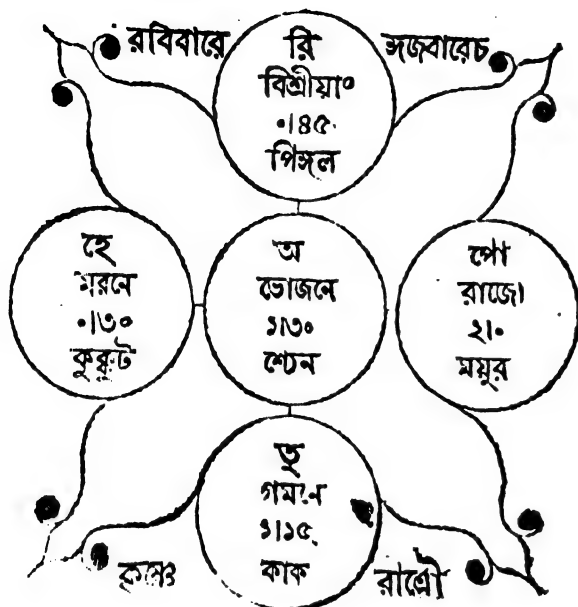 রবিবারে
রি
বিশ্রীয়া°
০।৪৫
পিঙ্গল
হে
মরনে
০।৩০
কুক্কুট
অ
ভোজনে
১।৩০
শ্যেন
পো
রাজ্যে
২।০
ময়ুর
তু
গমনে
১।১৫
কাক
কৃষ্ণে
রাত্রৌ